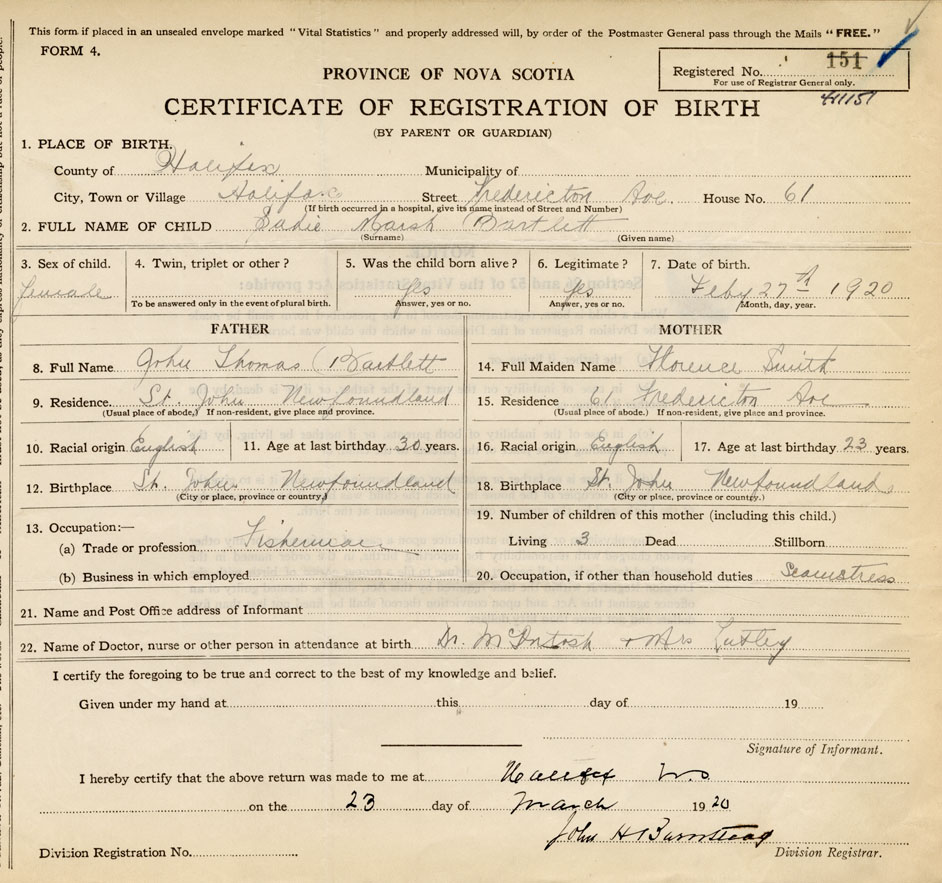 This form if placed in an unsealed envelope marked "Vital Statistics" and properly addressed will, by order of the Postmaster General pass through the Mails "FREE."
FORM 4.
Registered No. 151
For use of Registrar General only.
PROVINCE OF NOVA SCOTIA
CERTIFICATE OF REGISTRATION OF BIRTH
(BY PARENT OR GUARDIAN)
1. PLACE OF BIRTH.
County of Halifax Municipality of
City, Town or Village Halifax Street Fredericton Ave. House No. 61
(If birth occurred in a hospital, give its name instead of Street and Number)
2. FULL NAME OF CHILD Sadie Marsh Bartlett
(Surname) (Given name)
3. Sex of child. 4. Twin, triplet or other? 5. Was the child born alive? 6. Legitimate? 7. Date of birth.
female yes yes Feby 27th 1920
To be answered only in the event of plural birth. Answer, yes or no. Answer, yes or no. Month, day, year.
FATHER
8. Full Name John Thomas Bartlett
9. Residence. St. John Newfoundland
(Usual place of abode.) If non-resident, give place and province.
10. Racial origin English 11. Age at last birthday 30 years.
12. Birthplace St. John Newfoundland
(City or place, province or country.)
13. Occupation:—
(a) Trade or profession Fisherman
(b) Business in which employed
MOTHER
14. Full Maiden Name Florence Smith
15. Residence 61 Fredericton Ave
(Usual place of abode.) If non-resident, give place and province.
16. Racial origin English 17. Age at last birthday 23 years.
18. Birthplace St. John Newfoundland
(City or place, province or country.)
19. Number of children of this mother (including this child.)
Living 3 Dead Stillborn
20. Occupation, if other than household duties Seamstress
21. Name and Post Office address of Informant
22. Name of Doctor, nurse or other person in attendance at birth Dr. McIntosh + Mrs Lutley
I certify the foregoing to be true and correct to the best of my knowledge and belief.
Given under my hand at this day of 19
Signature of Informant.
I hereby certify that the above return was made to me at Halifax N.S
on the 23 day of March 1920
John H Barnstead
Division Registration No. Division Registrar.